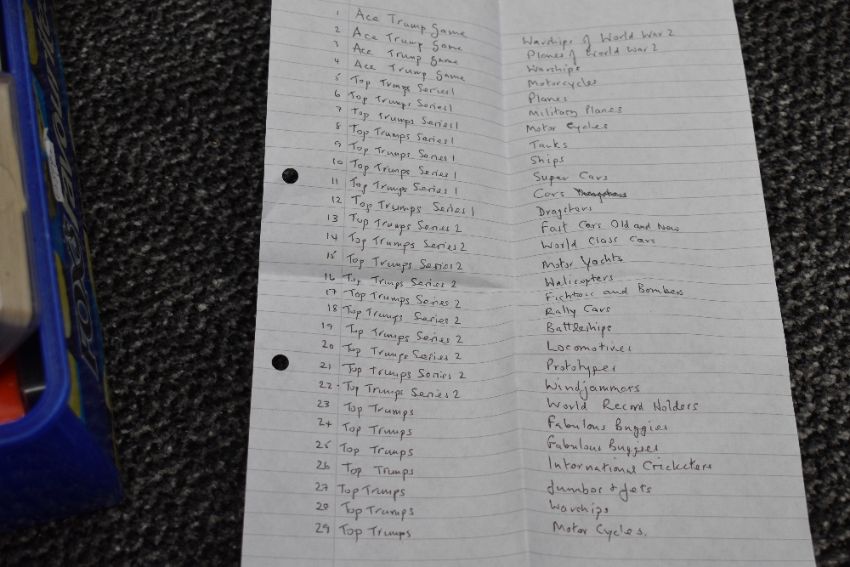 1 Ace Trump Game Warships of World War 2
2 Ace Trump Game Planes of World War 2
3 Ace Trump Game Warships
4 Ace Trump Game Motorcycles
5 Top Trumps Series 1 Planes
6 Top Trumps Series 1 Military Planes
7 Top Trumps Series 1 Motor Cycles
8 Top Trumps Series 1 Tanks
9 Top Trumps Series 1 Ships
10 Top Trumps Series 1 Super Cars
11 Top Trumps Series 1 Cars
12 Top Trumps Series 1 Dragsters
13 Top Trumps Series 2 Fast Cars Old and New
14 Top Trumps Series 2 World Class Cars
15 Top Trumps Series 2 Motor Yachts
16 Top Trumps Series 2 Helicopters
17 Top Trumps Series 2 Fighters and Bombers
18 Top Trumps Series 2 Rally Cars
19 Top Trumps Series 2 Battleships
20 Top Trumps Series 2 Locomotives
21 Top Trumps Series 2 Prototypes
22 Top Trumps Series 2 Windjammers
23 Top Trumps World Record Holders
24 Top Trumps Fabulous Buggies
25 Top Trumps Fabulous Buggies
26 Top Trumps International Cricketers
27 Top Trumps Jumbos & Jets
28 Top Trumps Warships
29 Top Trumps Motor Cycles.